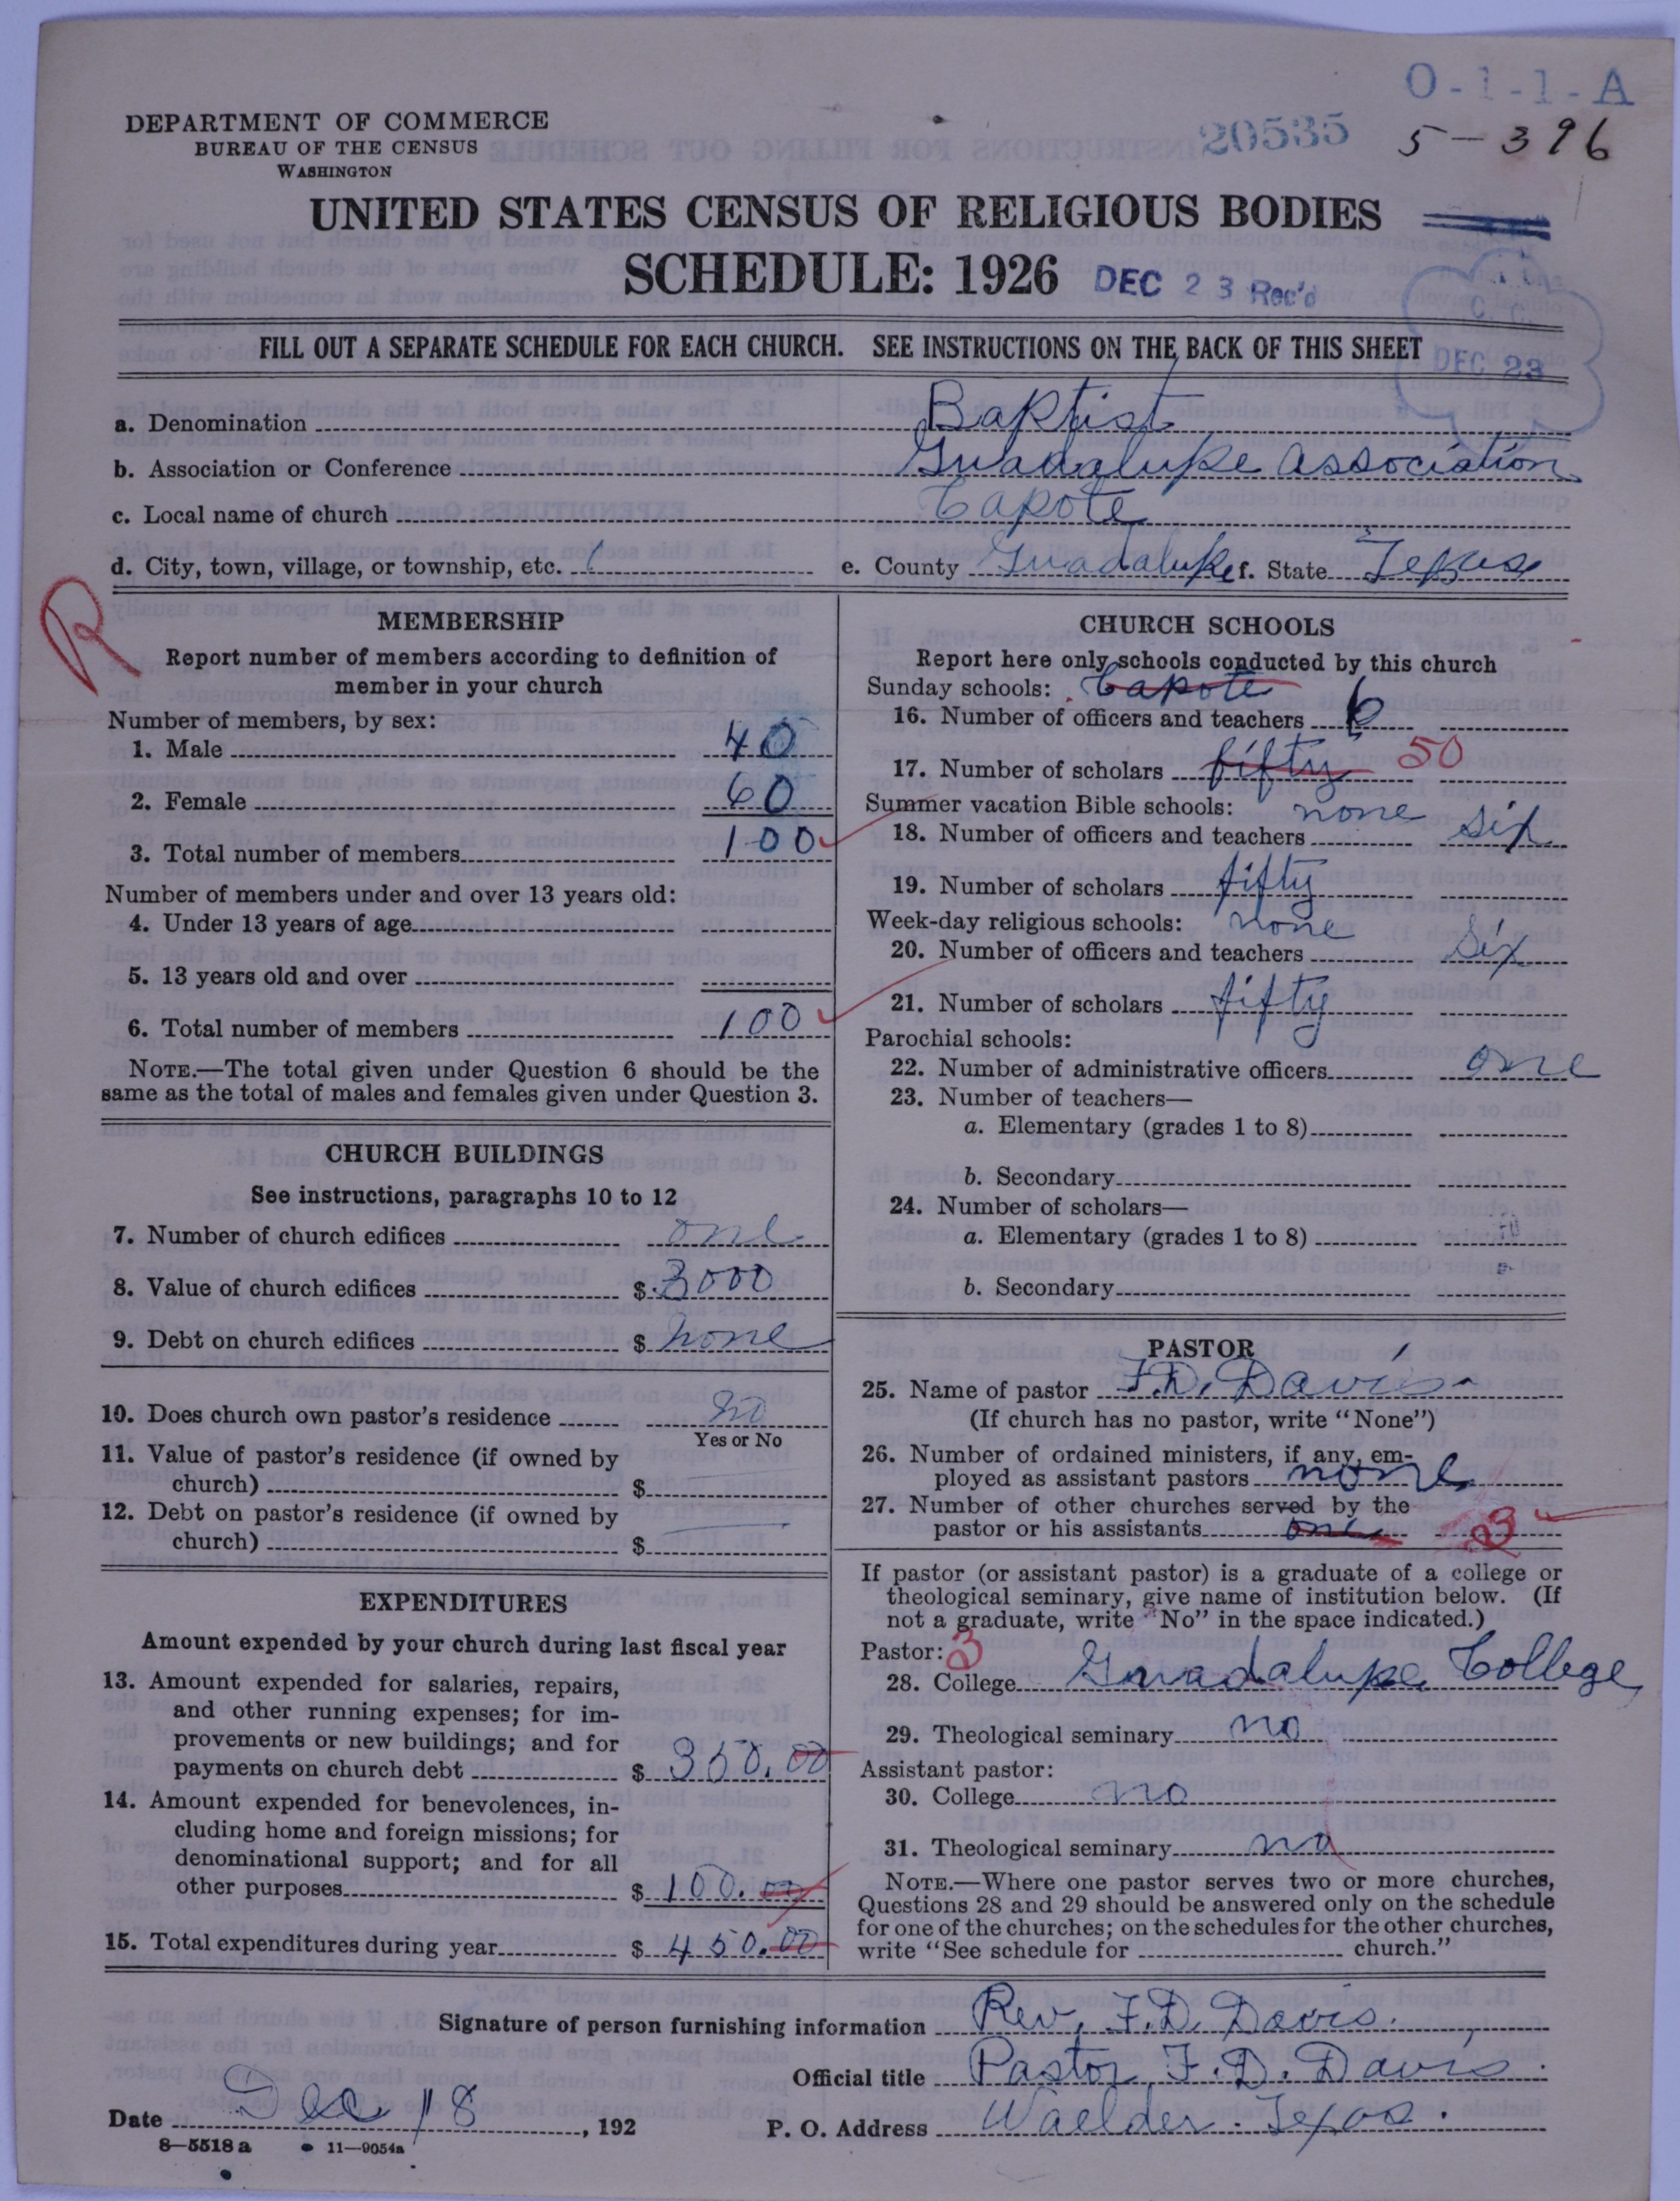 O-1-1-A
DEPARTMENT OF COMMERCE
BUREAU OF THE CENSUS
WASHINGTON
20535
5-396
UNITED STATES CENSUS OF RELIGIOUS BODIES
SCHEDULE: 1926
DEC 23 Rec'd
FILL OUT A SEPARATE SCHEDULE FOR EACH CHURCH. SEE INSTRUCTIONS ON THE BACK OF THIS SHEET
DEC 23
a. Denomination Baptist
b. Association or Conference Guadalupe Association
c. Local name of church Capote
d. City, town, village, or township, etc.
e. County Guadalupe f. State Texas
R
MEMBERSHIP
Report number of members according to definition of
member in your church
Number of members, by sex:
1. Male 40
2. Female 60
3. Total number of members 100
Number of members under and over 13 years old:
4. Under 13 years of age
5. 13 years old and over
6. Total number of members 100
NOTE.—The total given under Question 6 should be the
same as the total of males and females given under Question 3.
CHURCH BUILDINGS
See instructions, paragraphs 10 to 12
7. Number of church edifices one
8. Value of church edifices $ 3000
9. Debt on church edifices $ none
10. Does church own pastor's residence no
Yes or No
11. Value of pastor's residence (if owned by
church) $
12. Debt on pastor's residence (if owned by
church) $
EXPENDITURES
Amount expended by your church during last fiscal year
13. Amount expended for salaries, repairs,
and other running expenses; for im-
provements or new buildings; and for
payments on church debt $ 350.00
14. Amount expended for benevolences, in-
cluding home and foreign missions; for
denominational support; and for all
other purposes $ 100.00
15. Total expenditures during year $ 450.00
CHURCH SCHOOLS
Report here only schools conducted by this church
Sunday schools: Capote
16. Number of officers and teachers 6
17. Number of scholars fifty 50
Summer vacation Bible schools: none
18. Number of officers and teachers six
19. Number of scholars fifty
Week-day religious schools: none
20. Number of officers and teachers six
21. Number of scholars fifty
Parochial schools:
22. Number of administrative officers one
23. Number of teachers—
a. Elementary (grades 1 to 8)
b. Secondary
24. Number of scholars—
a. Elementary (grades 1 to 8)
b. Secondary
PASTOR
25. Name of pastor F.D. Davis
(If church has no pastor, write "None")
26. Number of ordained ministers, if any, em-
ployed as assistant pastors none
27. Number of other churches served by the
pastor or his assistants one 3
If pastor (or assistant pastor) is a graduate of a college or
theological seminary, give name of institution below. (If
not a graduate, write "No" in the space indicated.)
Pastor: 3
28. College Guadalupe College
29. Theological seminary no
Assistant pastor:
30. College no
31. Theological seminary no
NOTE.—Where one pastor serves two or more churches,
Questions 28 and 29 should be answered only on the schedule
for one of the churches; on the schedules for the other churches,
write "See schedule for church."
Signature of person furnishing information Rev. F.D. Davis.
Official title Pastor F.D. Davis.
Date Dec 18, 192
P. O. Address Waelder. Texas.
8—5518 a 11—9054a